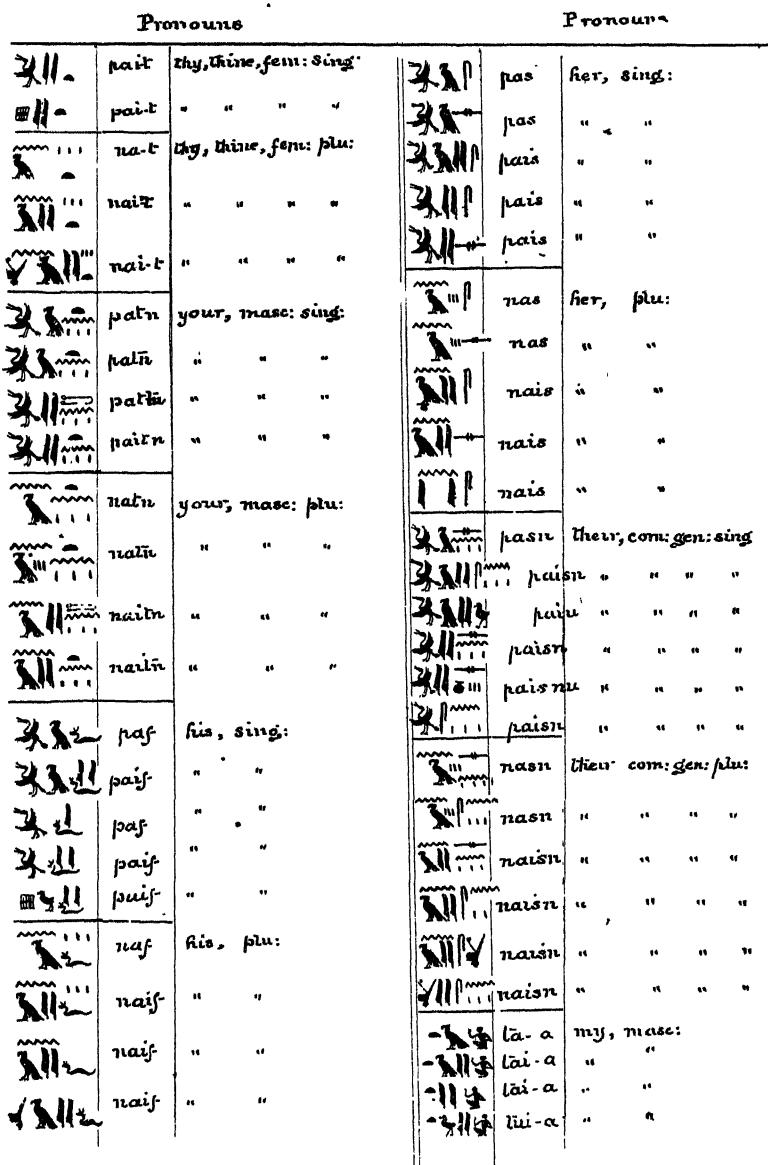 Pronouns
pait thy, thine, fem: sing:
pai-t " " " "
na-t thy, thine, fem: plu:
nait " " " "
nai-t " " " "
patn your, masc: sing:
patn̄ " " "
" " "
paitn " " "
natn your, masc: plu:
natn̄ " " "
naitn " " "
naitn̄ " " "
paf his, sing:
paif " "
paf " "
paif " "
puif " "
naf his, plu:
naif " "
naif " "
naif " "
Pronouns
pas her, sing:
pas " "
pais " "
pais " "
pais " "
nas her, plu:
nas " "
nais " "
nais " "
nais " "
pasn their, com: gen: sing
paisn " " " "
paiu " " " "
paisn " " " "
paisnu " " " "
paisn " " " "
nasn their com: gen: plu:
nasn " " " "
naisn " " " "
naisn " " " "
naisn " " " "
naisn " " " "
tā-a my, masc:
tāi-a " "
tāi-a " "
" "